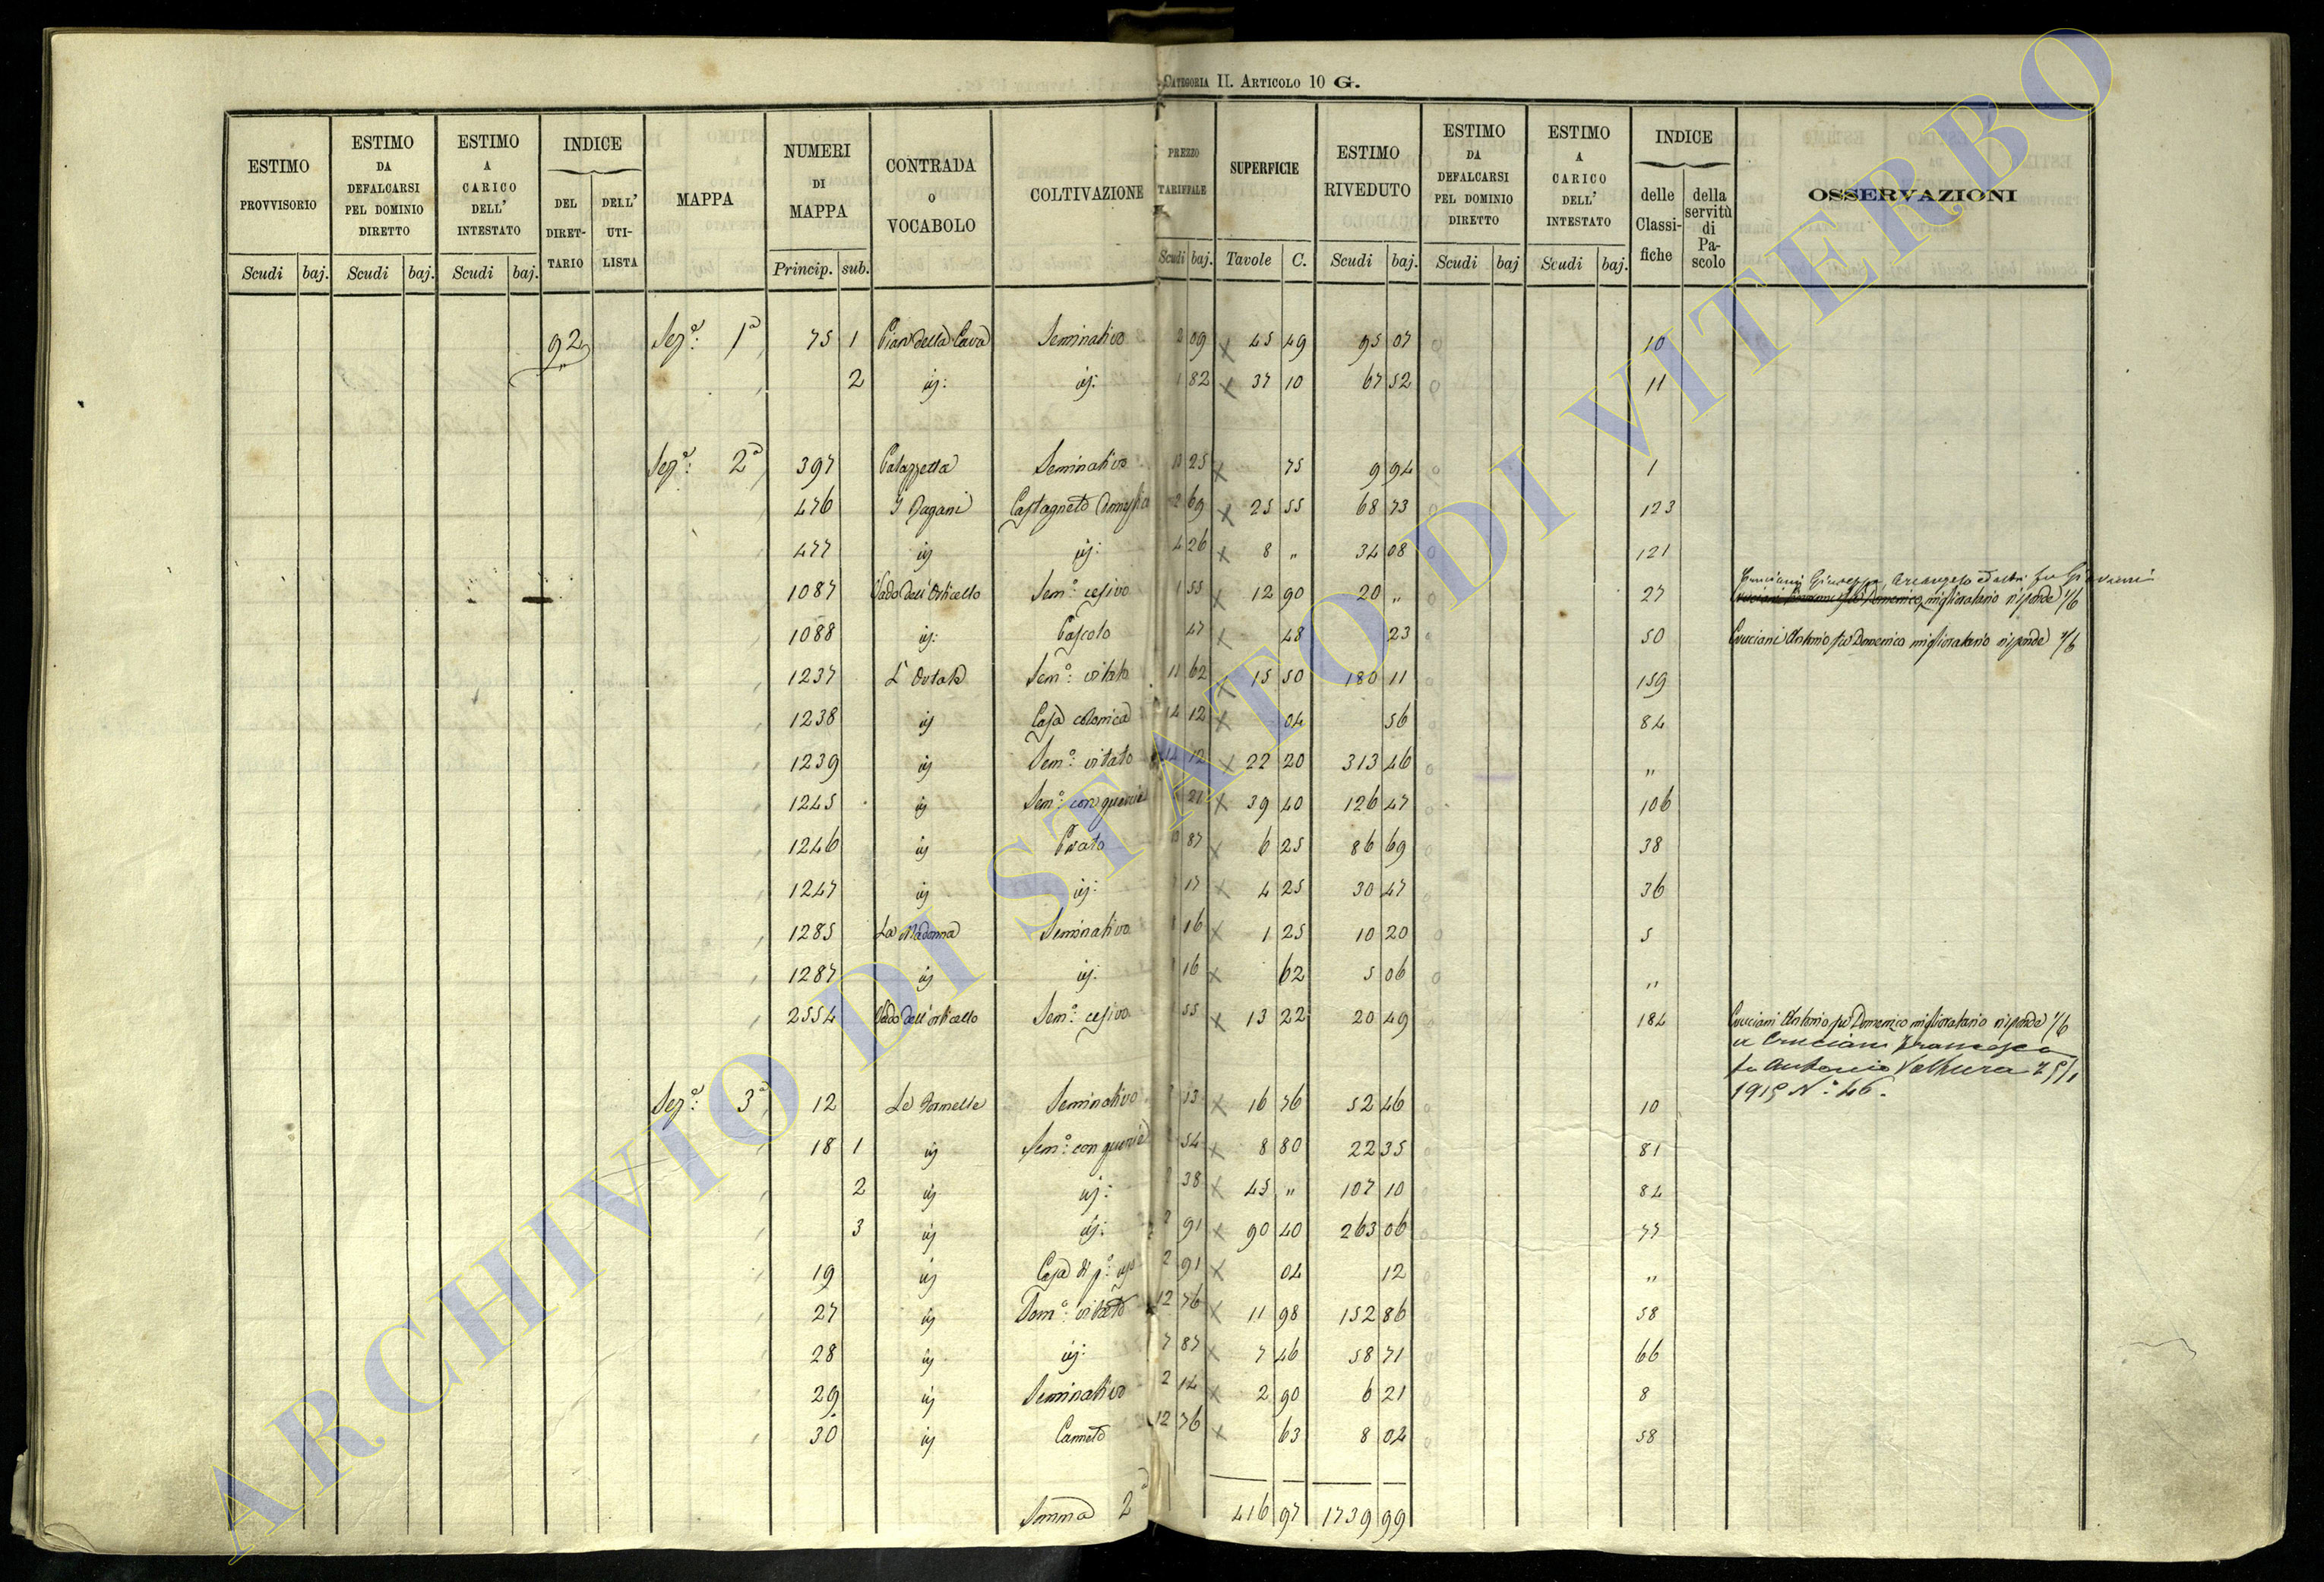 CATEGORIA II. ARTICOLO 10 G.
ESTIMO PROVVISORIO Scudi baj.
ESTIMO DA DEFALCARSI PEL DOMINIO DIRETTO Scudi baj.
ESTIMO A CARICO DELL' INTESTATO Scudi baj.
INDICE DEL DIRET-TARIO DELL' UTI-LISTA
MAPPA
NUMERI DI MAPPA Princip. sub.
CONTRADA o VOCABOLO
COLTIVAZIONE
PREZZO TARIFFALE Scudi baj.
SUPERFICIE Tavole C.
ESTIMO RIVEDUTO Scudi baj.
ESTIMO DA DEFALCARSI PEL DOMINIO DIRETTO Scudi baj
ESTIMO A CARICO DELL' INTESTATO Scudi baj.
INDICE delle Classi-fiche della servitù di Pa-scolo
OSSERVAZIONI
92 Sez.ª: 1ª 75 1 Pian della Cava Seminativo 2 09 45 49 95 07 10
2 id: id: 1 82 37 10 67 52 11
Sez.ª: 2ª 397 Palazzetta Seminativo 13 25 75 9 94 1
476 I Pagani Castagneto 2 69 25 55 68 73 123
477 id id: 4 26 8 " 34 08 121
1087 Vado dell'Orticello Sem.º: cesivo 1 55 12 90 20 " 27 Cruciani Giuseppe, Arcangelo ed altri fu Giovanni
Domenico miglioratario risponde 1/6
1088 id: Pascolo 47 48 23 50 Cruciani Antonio fu Domenico miglioratario risponde 1/6
1237 Sem.º: vitato 11 62 15 50 180 11 159
1238 id Casa colonica 14 12 04 56 84
1239 id Sem.º: vitato 14 12 22 20 313 46 "
1245 id Sem.º: con querce 21 39 40 126 47 106
1246 id Prato 87 6 25 86 69 38
1247 id id: 17 4 25 30 47 36
1285 La Madonna Seminativo 16 1 25 10 20 5
1287 id id: 16 62 5 06 "
2554 Vado dell'Orticello Sem.º: cesivo 55 13 22 20 49 184 Cruciani Antonio fu Domenico miglioratario risponde 1/6
a Cruciani Francesca
fu Antonio Voltura 25/1
1915 N.º 46.
Sez.ª: 3ª 12 Le Seminativo 13 16 76 52 46 10
18 1 id Sem.º: con querce 54 8 80 22 35 81
2 id id: 38 45 " 107 10 84
3 id id: 2 91 90 40 263 06 77
19 id Casa di p.º uso 2 91 04 12 "
27 id Sem.º: vitato 12 76 11 98 152 86 58
28 id id: 7 87 7 46 58 71 66
29 id Seminativo 2 14 2 90 6 21 8
30 id Canneto 12 76 63 8 04 58
Somma 2ª 416 97 1739 99
ARCHIVIO DI STATO DI VITERBO